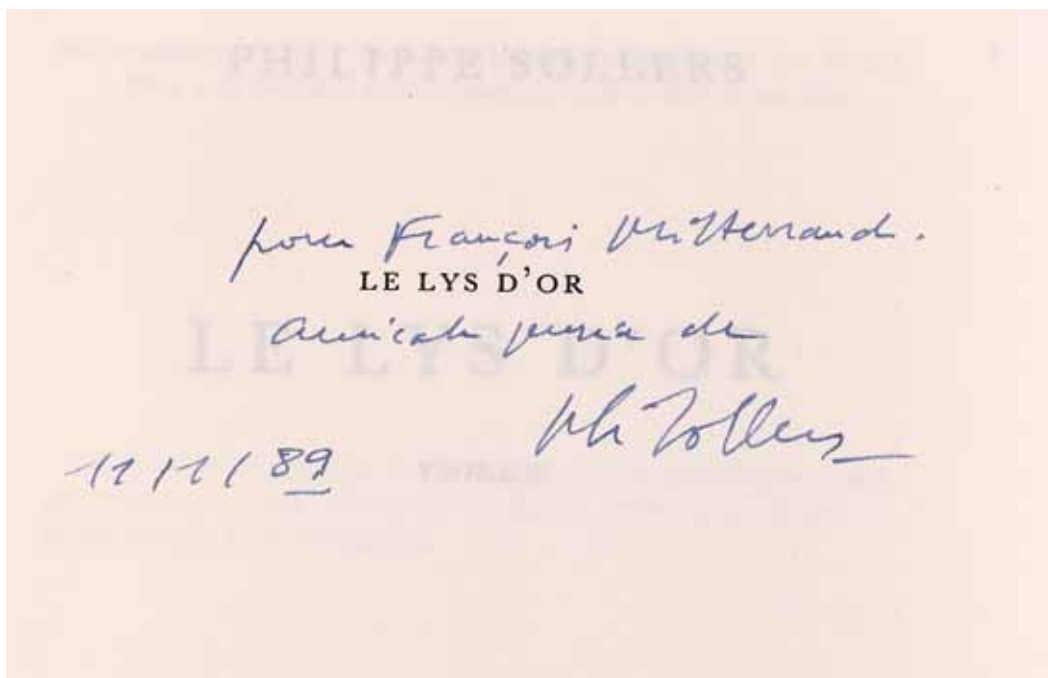 PHILIPPE SOLLERS
pour François Mitterrand.
LE LYS D'OR
amicale pensée de
LE LYS D'OR
Ph Sollers
11/1/89
roman